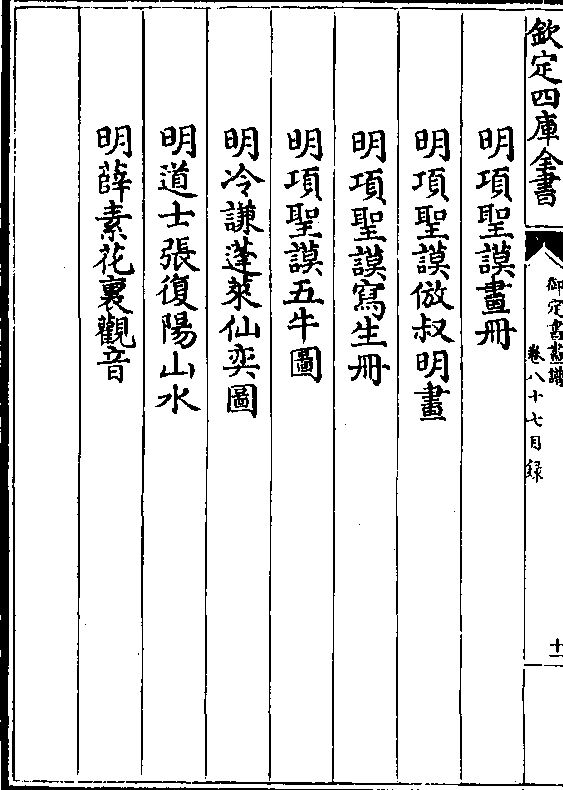 欽定四庫全書
御定書畫譜
卷八十七目録
十二
明項聖謨畫冊
明項聖謨倣叔明畫
明項聖謨寫生冊
明項聖謨五牛圖
明冷謙蓬萊仙奕圖
明道士張復陽山水
明薛素花裏觀音